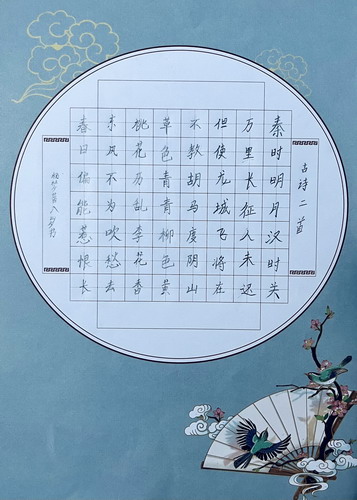 古诗二首
秦时明月汉时关
万里长征人未还
但使龙城飞将在
不教胡马度阴山
草色青青柳色黄
桃花历乱李花香
东风不为吹愁去
春日偏能惹恨长